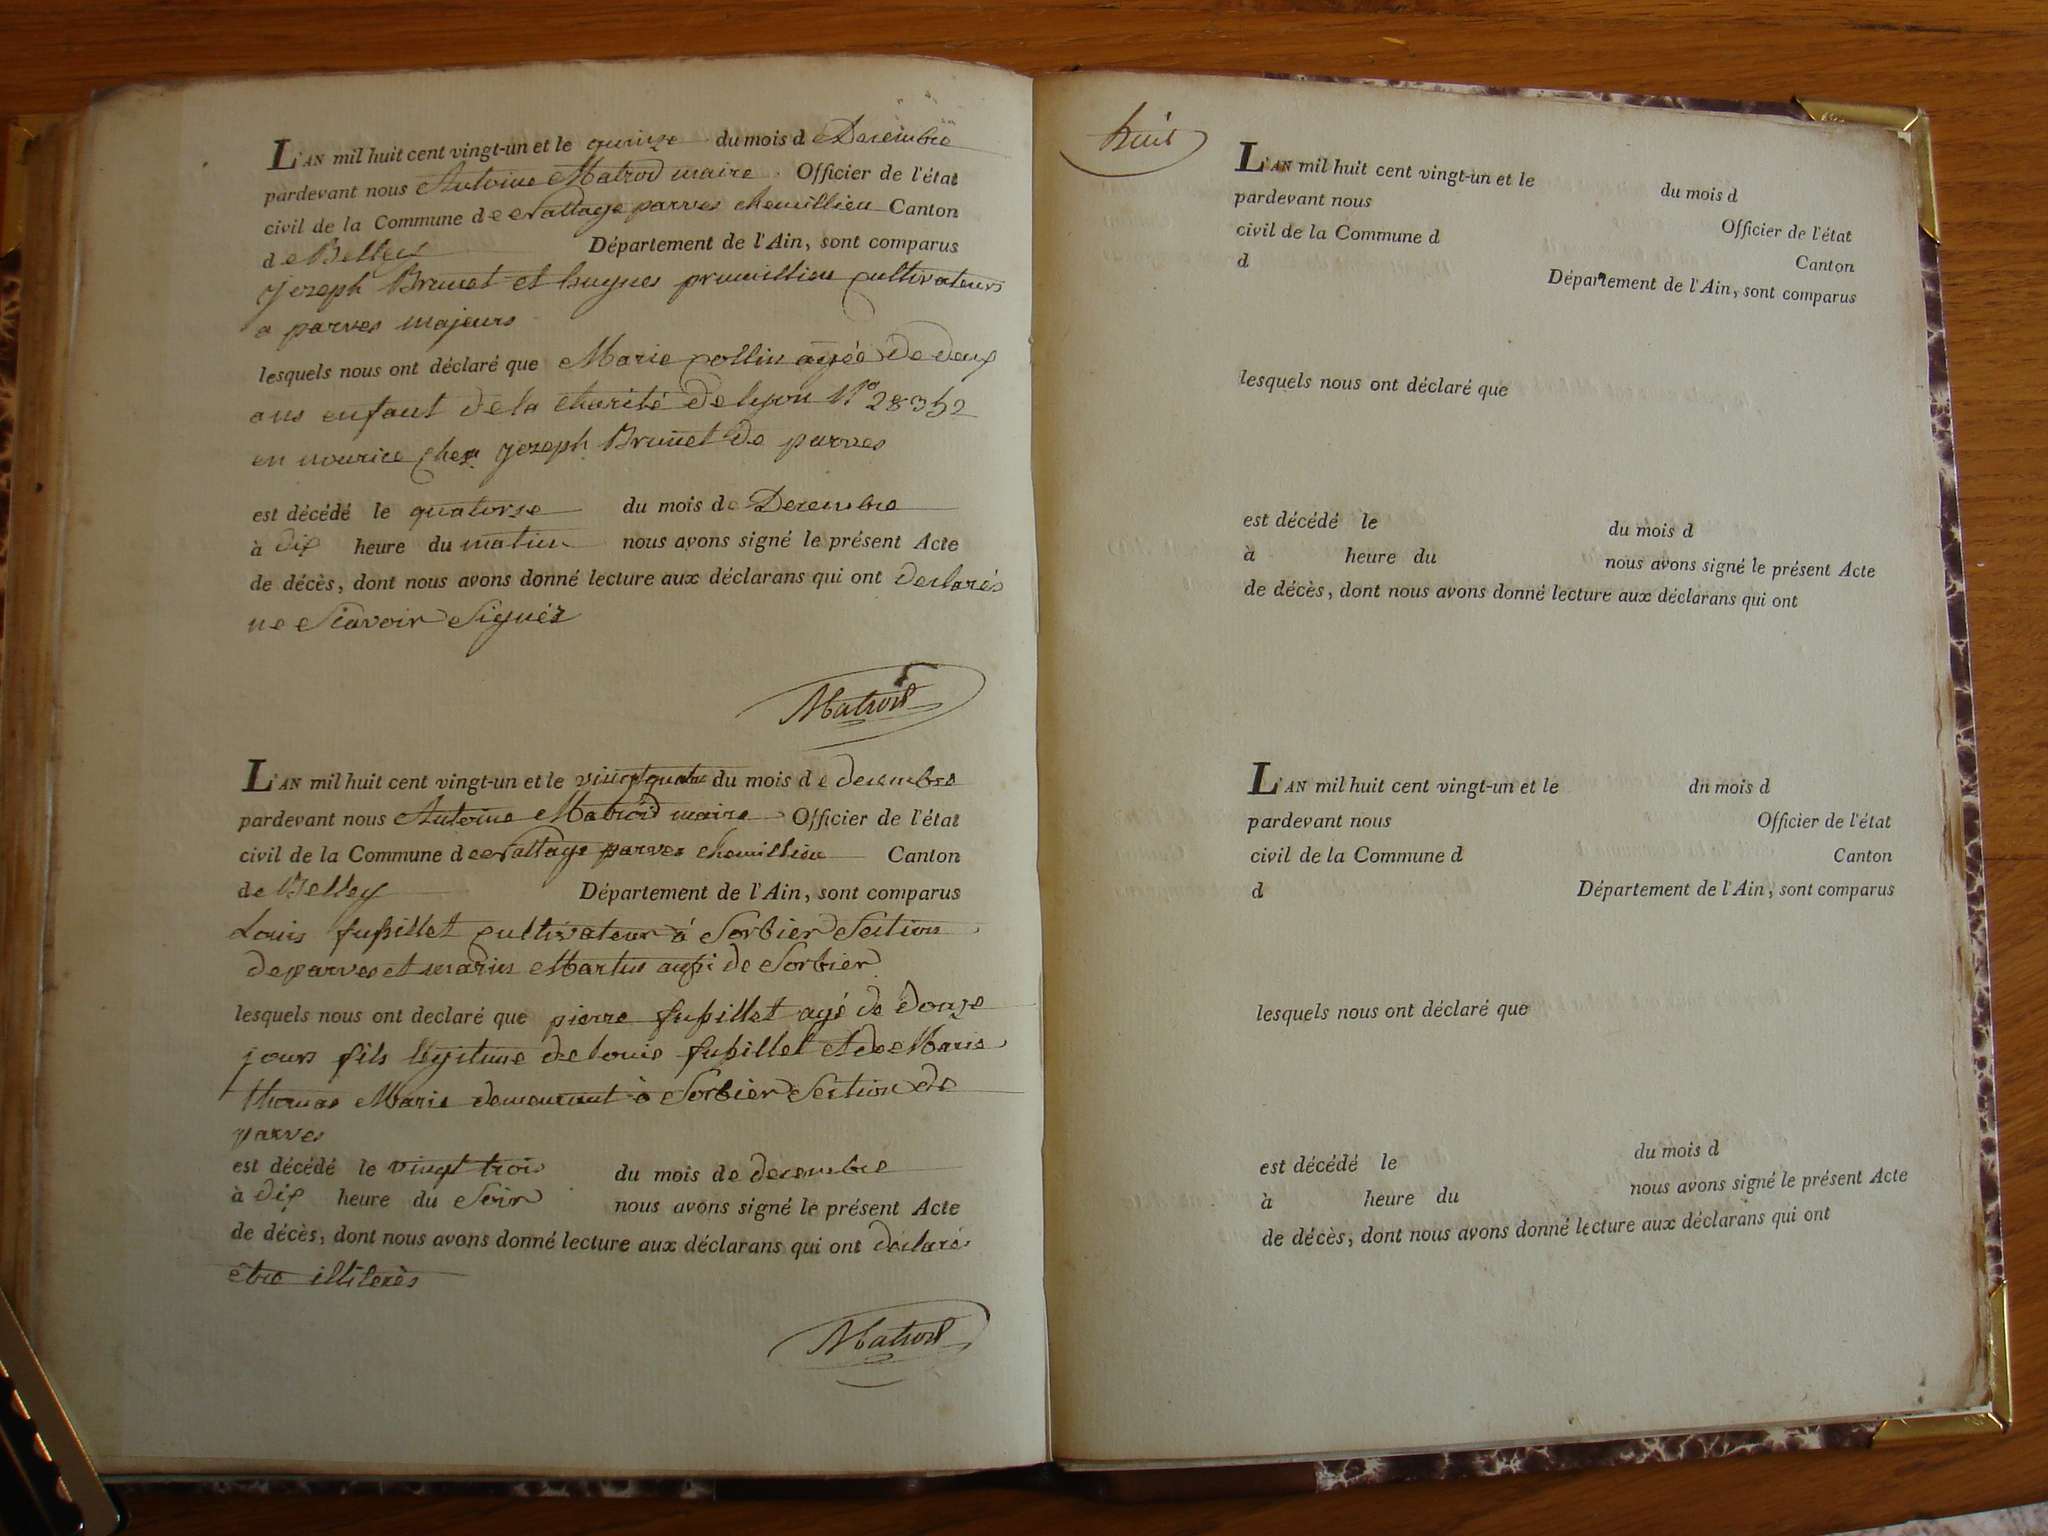 L'AN mil huit cent vingt-un et le quinze du mois de Decembre
pardevant nous Antoine Matrod maire Officier de l'état
civil de la Commune de Nattage parves chemillieu Canton
de Belley Département de l'Ain, sont comparus
Joseph Brunet et hugues prumillieu cultivateurs
a parves majeurs
lesquels nous ont déclaré que Marie collin agée de deux
ans enfant de la charité de lyon N° 28352
en nourice chez Joseph Brunet de parves
est décédé le quatorse du mois de Decembre
à dix heure du matin nous avons signé le présent Acte
de décès, dont nous avons donné lecture aux déclarans qui ont declarés
ne Scavoir Signér
Matrod
L'AN mil huit cent vingt-un et le vingtquatre du mois de decembre
pardevant nous Antoine Matrod maire Officier de l'état
civil de la Commune de Nattage parves chemillieu Canton
de Belley Département de l'Ain, sont comparus
Louis fussillet cultivateur à Sorbier Section
de parves et marin Martin aussi de Sorbier
lesquels nous ont declaré que pierre fussillet agé de douze
jours fils légitime de louis fussillet et de Marie
thomas Marie demeurant à Sorbier Section de
parves
est décédé le vingt trois du mois de decembre
à dix heure du Soir nous avons signé le présent Acte
de décès, dont nous avons donné lecture aux déclarans qui ont declarés
être illiterès
Matrod
huit
L'AN mil huit cent vingt-un et le du mois d
pardevant nous Officier de l'état
civil de la Commune d Canton
d Département de l'Ain, sont comparus
lesquels nous ont déclaré que
est décédé le du mois d
à heure du nous avons signé le présent Acte
de décès, dont nous avons donné lecture aux déclarans qui ont
L'AN mil huit cent vingt-un et le dn mois d
pardevant nous Officier de l'état
civil de la Commune d Canton
d Département de l'Ain, sont comparus
lesquels nous ont déclaré que
est décédé le du mois d
à heure du nous avons signé le présent Acte
de décès, dont nous avons donné lecture aux déclarans qui ont